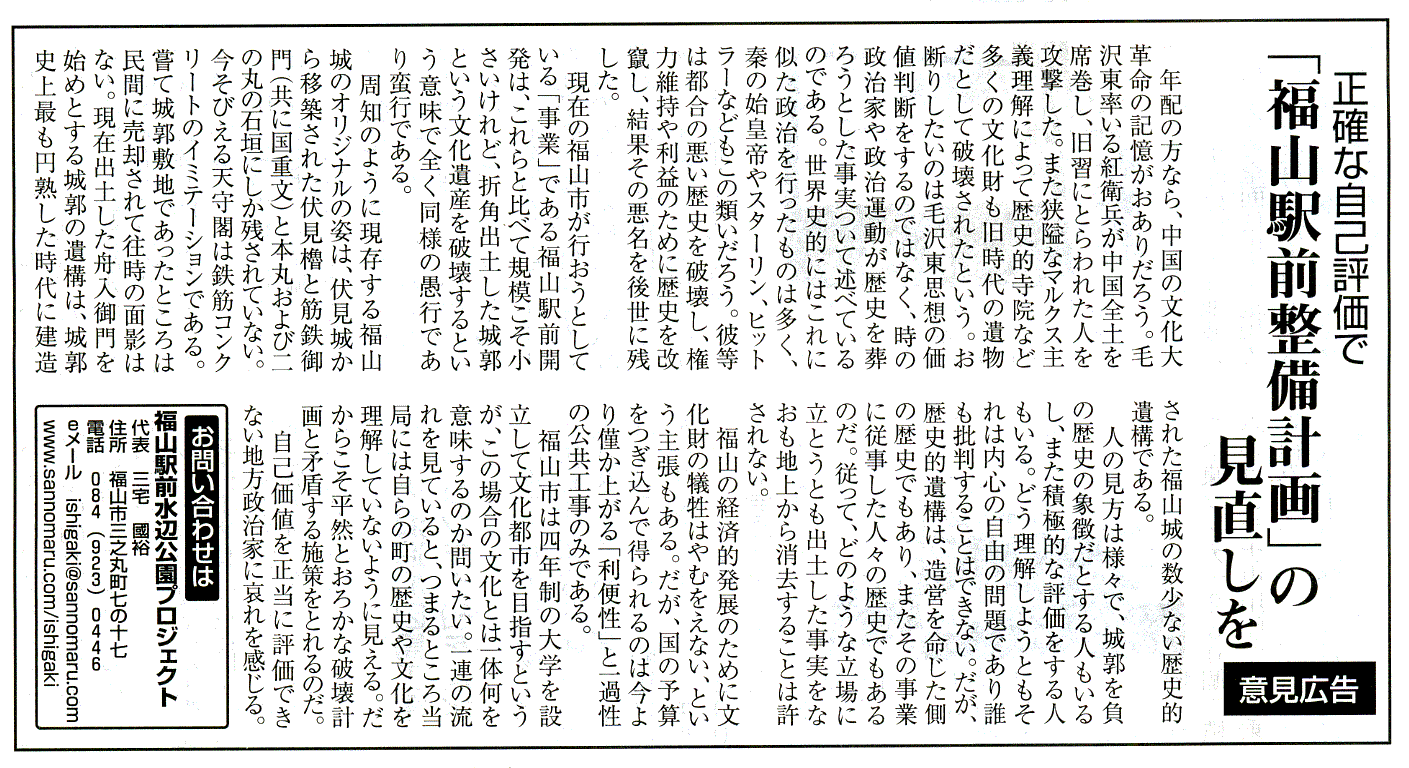 正確な自己評価で
「福山駅前整備計画」の
見直しを
意見広告
年配の方なら、中国の文化大
革命の記憶がおありだろう。毛
沢東率いる紅衛兵が中国全土を
席巻し、旧習にとらわれた人を
攻撃した。また狭隘なマルクス主
義理解によって歴史的寺院など
多くの文化財も旧時代の遺物
だとして破壊されたという。お
断りしたいのは毛沢東思想の価
値判断をするのではなく、時の
政治家や政治運動が歴史を葬
ろうとした事実ついて述べている
のである。世界史的にはこれに
似た政治を行ったものは多く、
秦の始皇帝やスターリン、ヒット
ラーなどもこの類いだろう。彼等
は都合の悪い歴史を破壊し、権
力維持や利益のために歴史を改
竄し、結果その悪名を後世に残
した。
現在の福山市が行おうとして
いる「事業」である福山駅前開
発は、これらと比べて規模こそ小
さいけれど、折角出土した城郭
という文化遺産を破壊するとい
う意味で全く同様の愚行であ
り蛮行である。
周知のように現存する福山
城のオリジナルの姿は、伏見城か
ら移築された伏見櫓と筋鉄御
門(共に国重文)と本丸および二
の丸の石垣にしか残されていない。
今そびえる天守閣は鉄筋コンク
リートのイミテーションである。
嘗て城郭敷地であったところは
民間に売却されて往時の面影は
ない。現在出土した舟入御門を
始めとする城郭の遺構は、城郭
史上最も円熟した時代に建造
された福山城の数少ない歴史的
遺構である。
人の見方は様々で、城郭を負
の歴史の象徴だとする人もいる
し、また積極的な評価をする人
もいる。どう理解しようともそ
れは内心の自由の問題であり誰
も批判することはできない。だが、
歴史的遺構は、造営を命じた側
の歴史でもあり、またその事業
に従事した人々の歴史でもある
のだ。従って、どのような立場に
立とうとも出土した事実をな
おも地上から消去することは許
されない。
福山の経済的発展のために文
化財の犠牲はやむをえない、とい
う主張もある。だが、国の予算
をつぎ込んで得られるのは今よ
り僅か上がる「利便性」と一過性
の公共工事のみである。
福山市は四年制の大学を設
立して文化都市を目指すという
が、この場合の文化とは一体何を
意味するのか問いたい。一連の流
れを見ていると、つまるところ当
局には自らの町の歴史や文化を
理解していないように見える。だ
からこそ平然とおろかな破壊計
画と矛盾する施策をとれるのだ。
自己価値を正当に評価でき
ない地方政治家に哀れを感じる。
お問い合わせは
福山駅前水辺公園プロジェクト
代表 三宅 國裕
住所 福山市三之丸町七の十七
電話 084(923)0446
eメール ishigaki@sannomaru.com
www.sannomaru.com/ishigaki